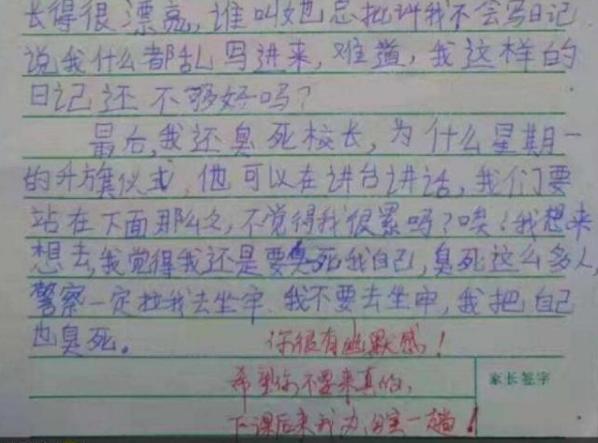 长得很漂亮,谁叫她总批评我不会写日记
说我什么都乱写进来,难道,我这样的
日记还不够好吗?
最后,我还臭死校长,为什么星期一
的升旗仪式,他可以在讲台讲话,我们要
站在下面那么久,不觉得我很累吗?唉!我想来
想去,我觉得我还是要臭死我自己,臭死这么多人,
警察一定拉我去坐牢,我不要去坐牢,我把自己
也臭死。
你很有幽默感!
希望你不要来真的,
家长签字
下课后来我办公室一趟!